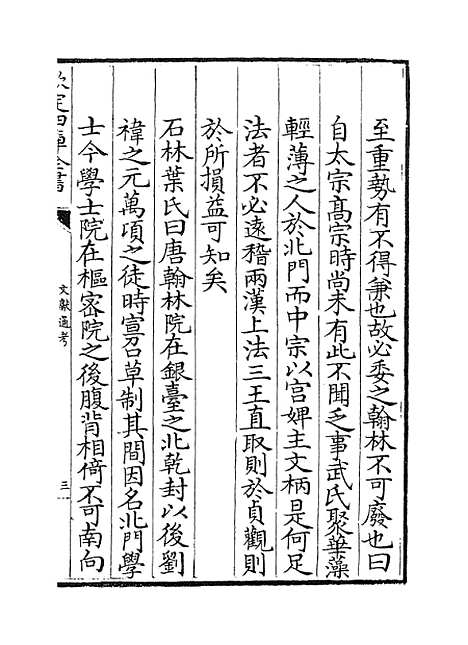 至重勢有不得兼也故必委之翰林不可廢也曰
自太宗髙宗時尚未有此不聞乏事武氏聚華藻
輕薄之人於北門而中宗以宫婢主文柄是何足
法者不必逺稽兩漢上法三王直取則於貞觀則
於所損益可知矣
石林葉氏曰唐翰林院在銀臺之北乾封以後劉
禕之元萬頃之徒時宣召草制其間因名北門學
士今學士院在樞密院之後腹背相倚不可南向
欽定四庫全書
文獻通考
三